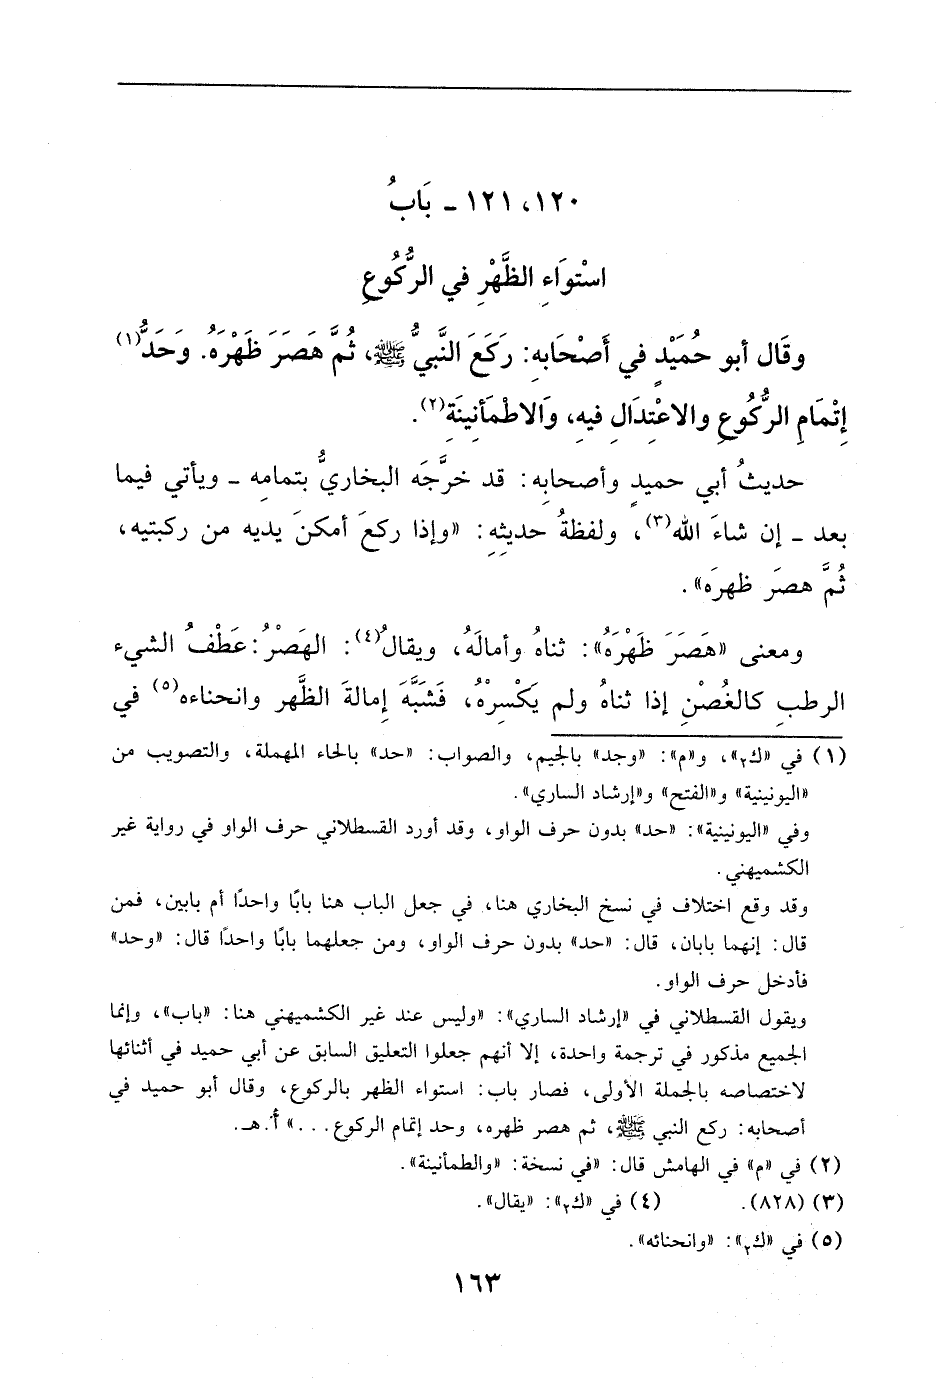 ١٢٠، ١٢١ - بَابُ
اسْتِوَاءِ الظَّهْرِ في الرُّكُوعِ
وقَال أبو حُمَيْدٍ في أَصْحَابِهِ: رَكَعَ النَّبيُّ ﷺ، ثُمَّ هَصَرَ ظَهْرَهُ. وَحَدُّ(١)
إِتْمَامِ الرُّكُوعِ والاعْتِدَالِ فيهِ، وَالاطْمَأنِينَةِ(٢).
حديثُ أبي حميدٍ وأصحابِه: قد خرَّجَه البخاريُّ بتمامِه ـ ويأتي فيما
بعد ـ إن شاءَ الله(٣)، ولفظةُ حديثِهِ: «وإذا ركعَ أمكنَ يديه من ركبتيه،
ثُمَّ هصرَ ظهرَه».
ومعنى «هَصَرَ ظَهْرَهُ»: ثناهُ وأمالَهُ، ويقالُ(٤): الهَصْرُ: عَطْفُ الشيء
الرطبِ كالغُصْنِ إذا ثناهُ ولم يَكْسِرْهُ، فَشَبَّهَ إمالةَ الظَّهر وانحناءه(٥) في
(١) في «ك٢»، و«م»: «وجد» بالجيم، والصواب: «حد» بالحاء المهملة، والتصويب من
«اليونينية» و«الفتح» و«إرشاد الساري».
وفي «اليونينية»: «حد» بدون حرف الواو، وقد أورد القسطلاني حرف الواو في رواية غير
الكشميهني.
وقد وقع اختلاف في نسخ البخاري هنا، في جعل الباب هنا بابًا واحدًا أم بابين، فمن
قال: إنهما بابان، قال: «حد» بدون حرف الواو، ومن جعلهما بابًا واحدًا قال: «وحد»
فأدخل حرف الواو.
ويقول القسطلاني في «إرشاد الساري»: «وليس عند غير الكشميهني هنا: «باب»، وإنما
الجميع مذكور في ترجمة واحدة، إلا أنهم جعلوا التعليق السابق عن أبي حميد في أثنائها
لاختصاصه بالجملة الأولى، فصار باب: استواء الظهر بالركوع، وقال أبو حميد في
أصحابه: ركع النبي ﷺ، ثم هصر ظهره، وحد إتمام الركوع...» أ.هـ.
(٢) في «م» في الهامش قال: «في نسخة: «والطمأنينة».
(٣) (٨٢٨). (٤) في «ك٢»: «يقال».
(٥) في «ك٢»: «وانحنائه».
١٦٣